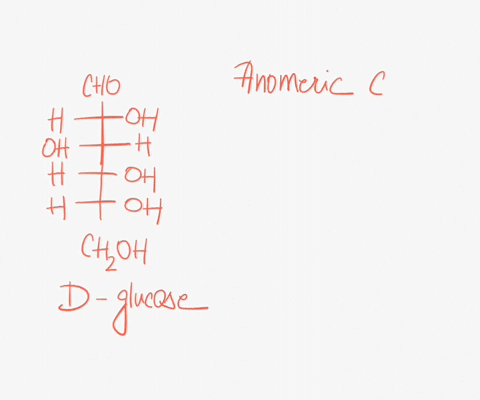 CHO
Anomeric C
H OH
OH H
H OH
H OH
CH₂OH
D-glucose